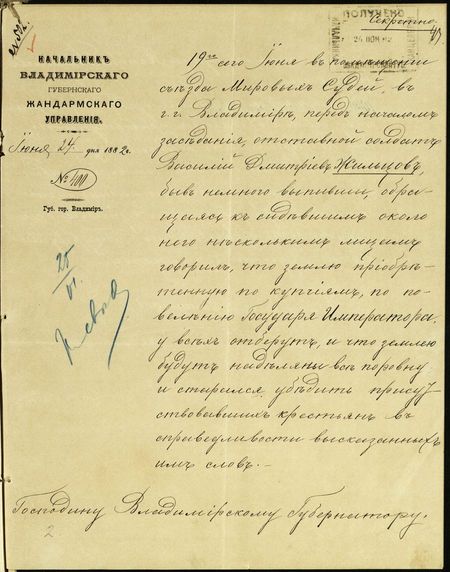 Секретно.
ПОЛУЧЕНО
24 ІЮН. 82
НАЧАЛЬНИКЪ
ВЛАДИМІРСКАГО
ГУБЕРНСКАГО
ЖАНДАРМСКАГО
УПРАВЛЕНІЯ.
Іюня 24 дня 1882 г.
№ 400
Губ. гор. Владиміръ.
19го сего Іюня въ помѣщеніи
съѣзда Мировыхъ Судей, въ
г. г. Владимірѣ, передъ началомъ
засѣданія, отставной солдатъ
Василій Дмитріевъ Жильцовъ,
бывъ немного выпивши, обра-
щаясь къ сидѣвшимъ около
него нѣсколькимъ лицамъ
говорилъ, что землю пріобрѣ-
тенную по купчіямъ, по по-
велѣнію Государя Императора,
у всѣхъ отберутъ, и что землею
будутъ надѣляны всѣ поровну
и старался убѣдить присут-
ствовавшихъ крестьянъ въ
справедливости высказанныхъ
имъ словъ.—
Господину Владимірскому Губернатору.
25
VI
2